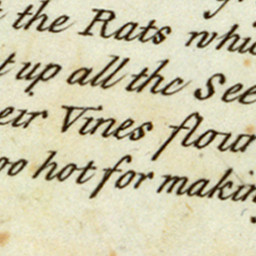 the Rats whi
t up all the See
eir Vines flour
oo hot for makin